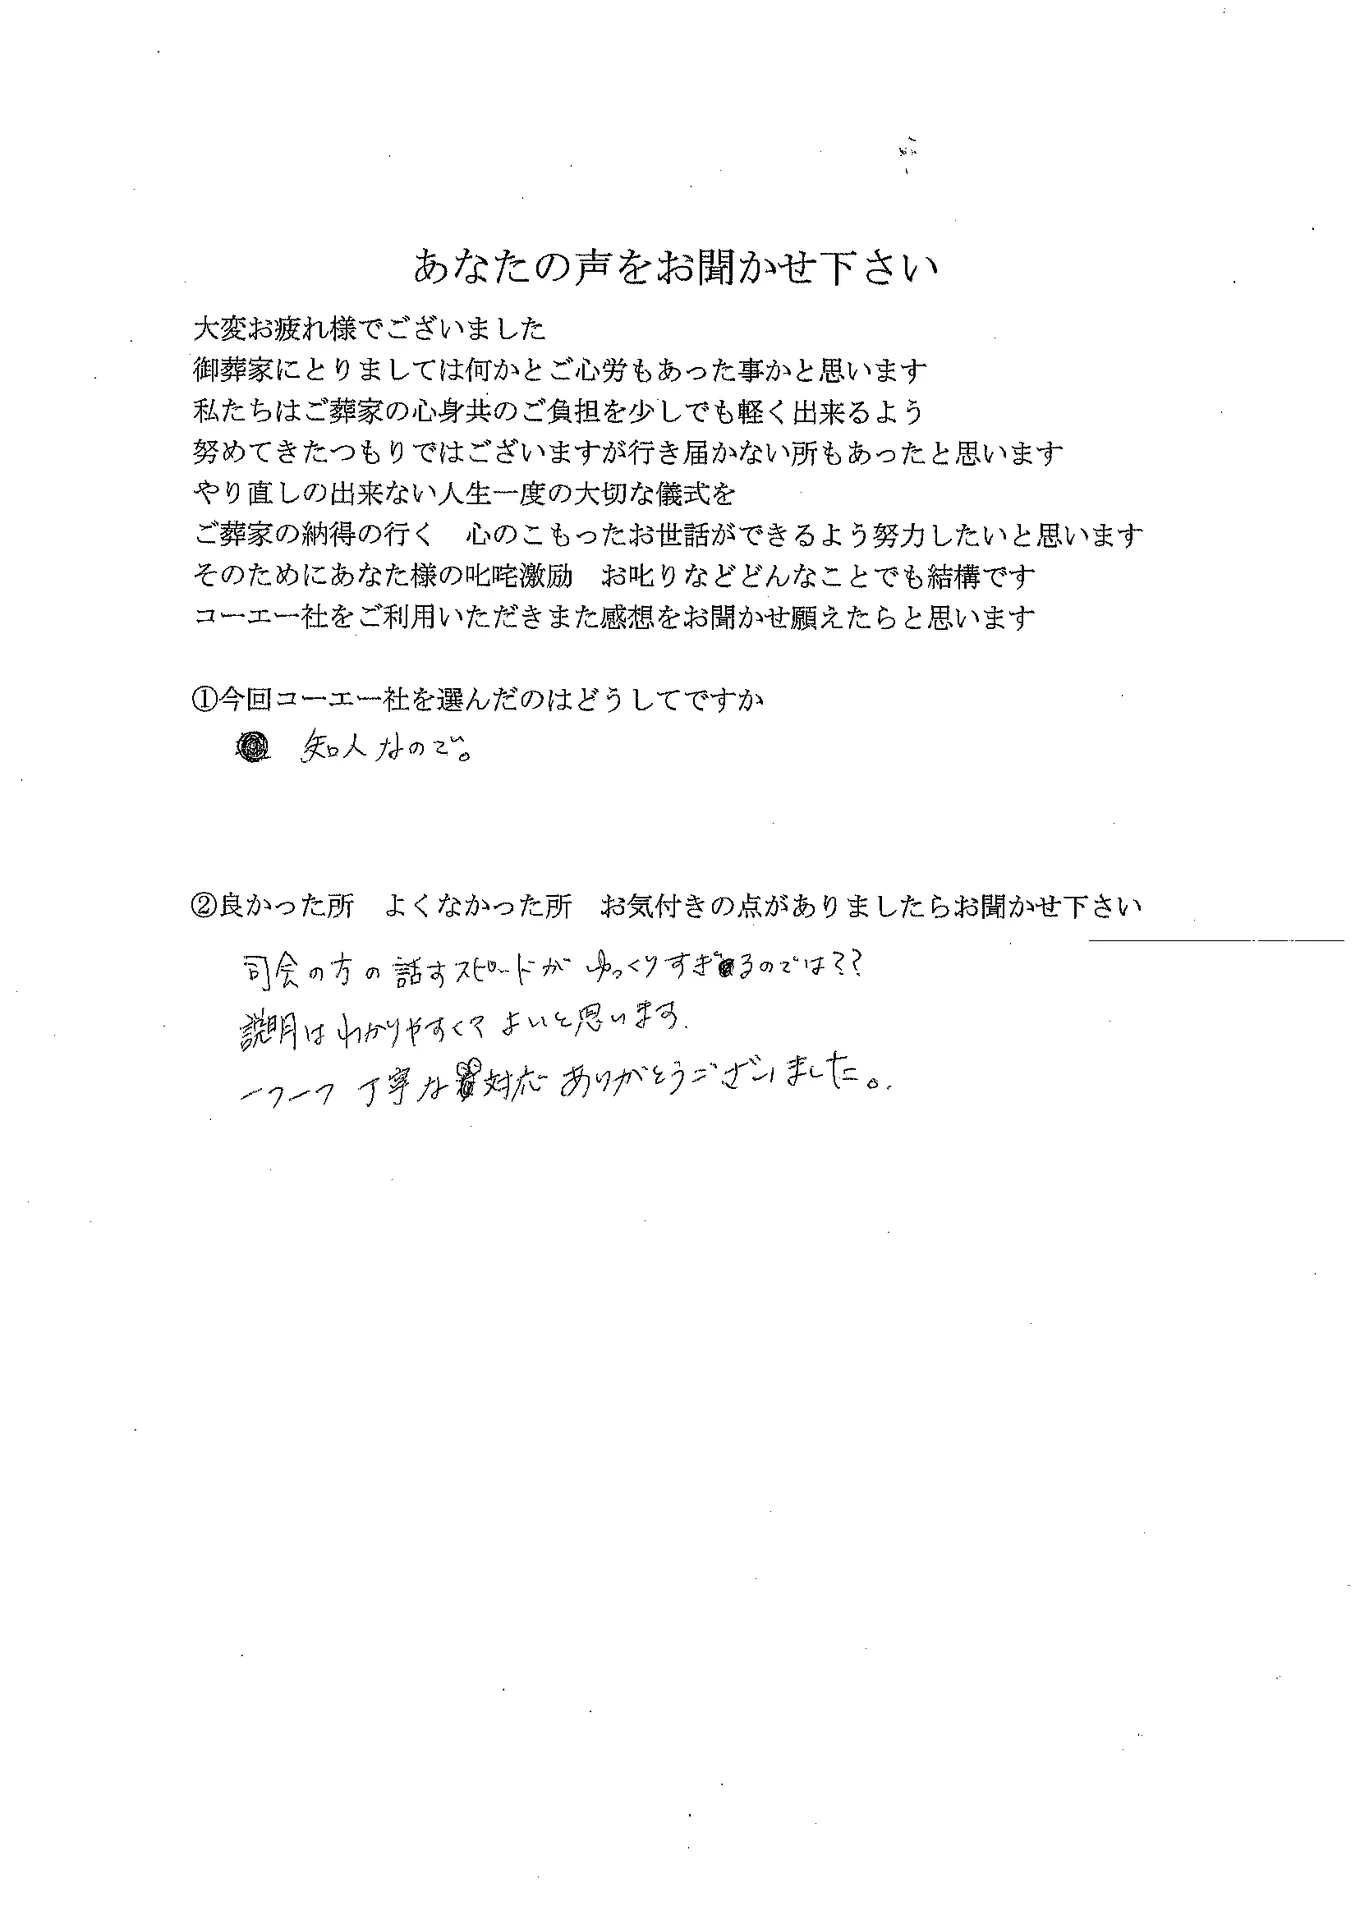 あなたの声をお聞かせ下さい
大変お疲れ様でございました
御葬家にとりましては何かとご心労もあった事かと思います
私たちはご葬家の心身共のご負担を少しでも軽く出来るよう
努めてきたつもりではございますが行き届かない所もあったと思います
やり直しの出来ない人生一度の大切な儀式を
ご葬家の納得の行く　心のこもったお世話ができるよう努力したいと思います
そのためにあなた様の叱咤激励　お叱りなどどんなことでも結構です
コーエー社をご利用いただきまた感想をお聞かせ願えたらと思います
①今回コーエー社を選んだのはどうしてですか
知人なので。
②良かった所　よくなかった所　お気付きの点がありましたらお聞かせ下さい
司会の方の話すスピードが ゆっくりすぎるのでは??
説明はわかりやすくて よいと思います.
一つ一つ 丁寧な対応 ありがとうございました。